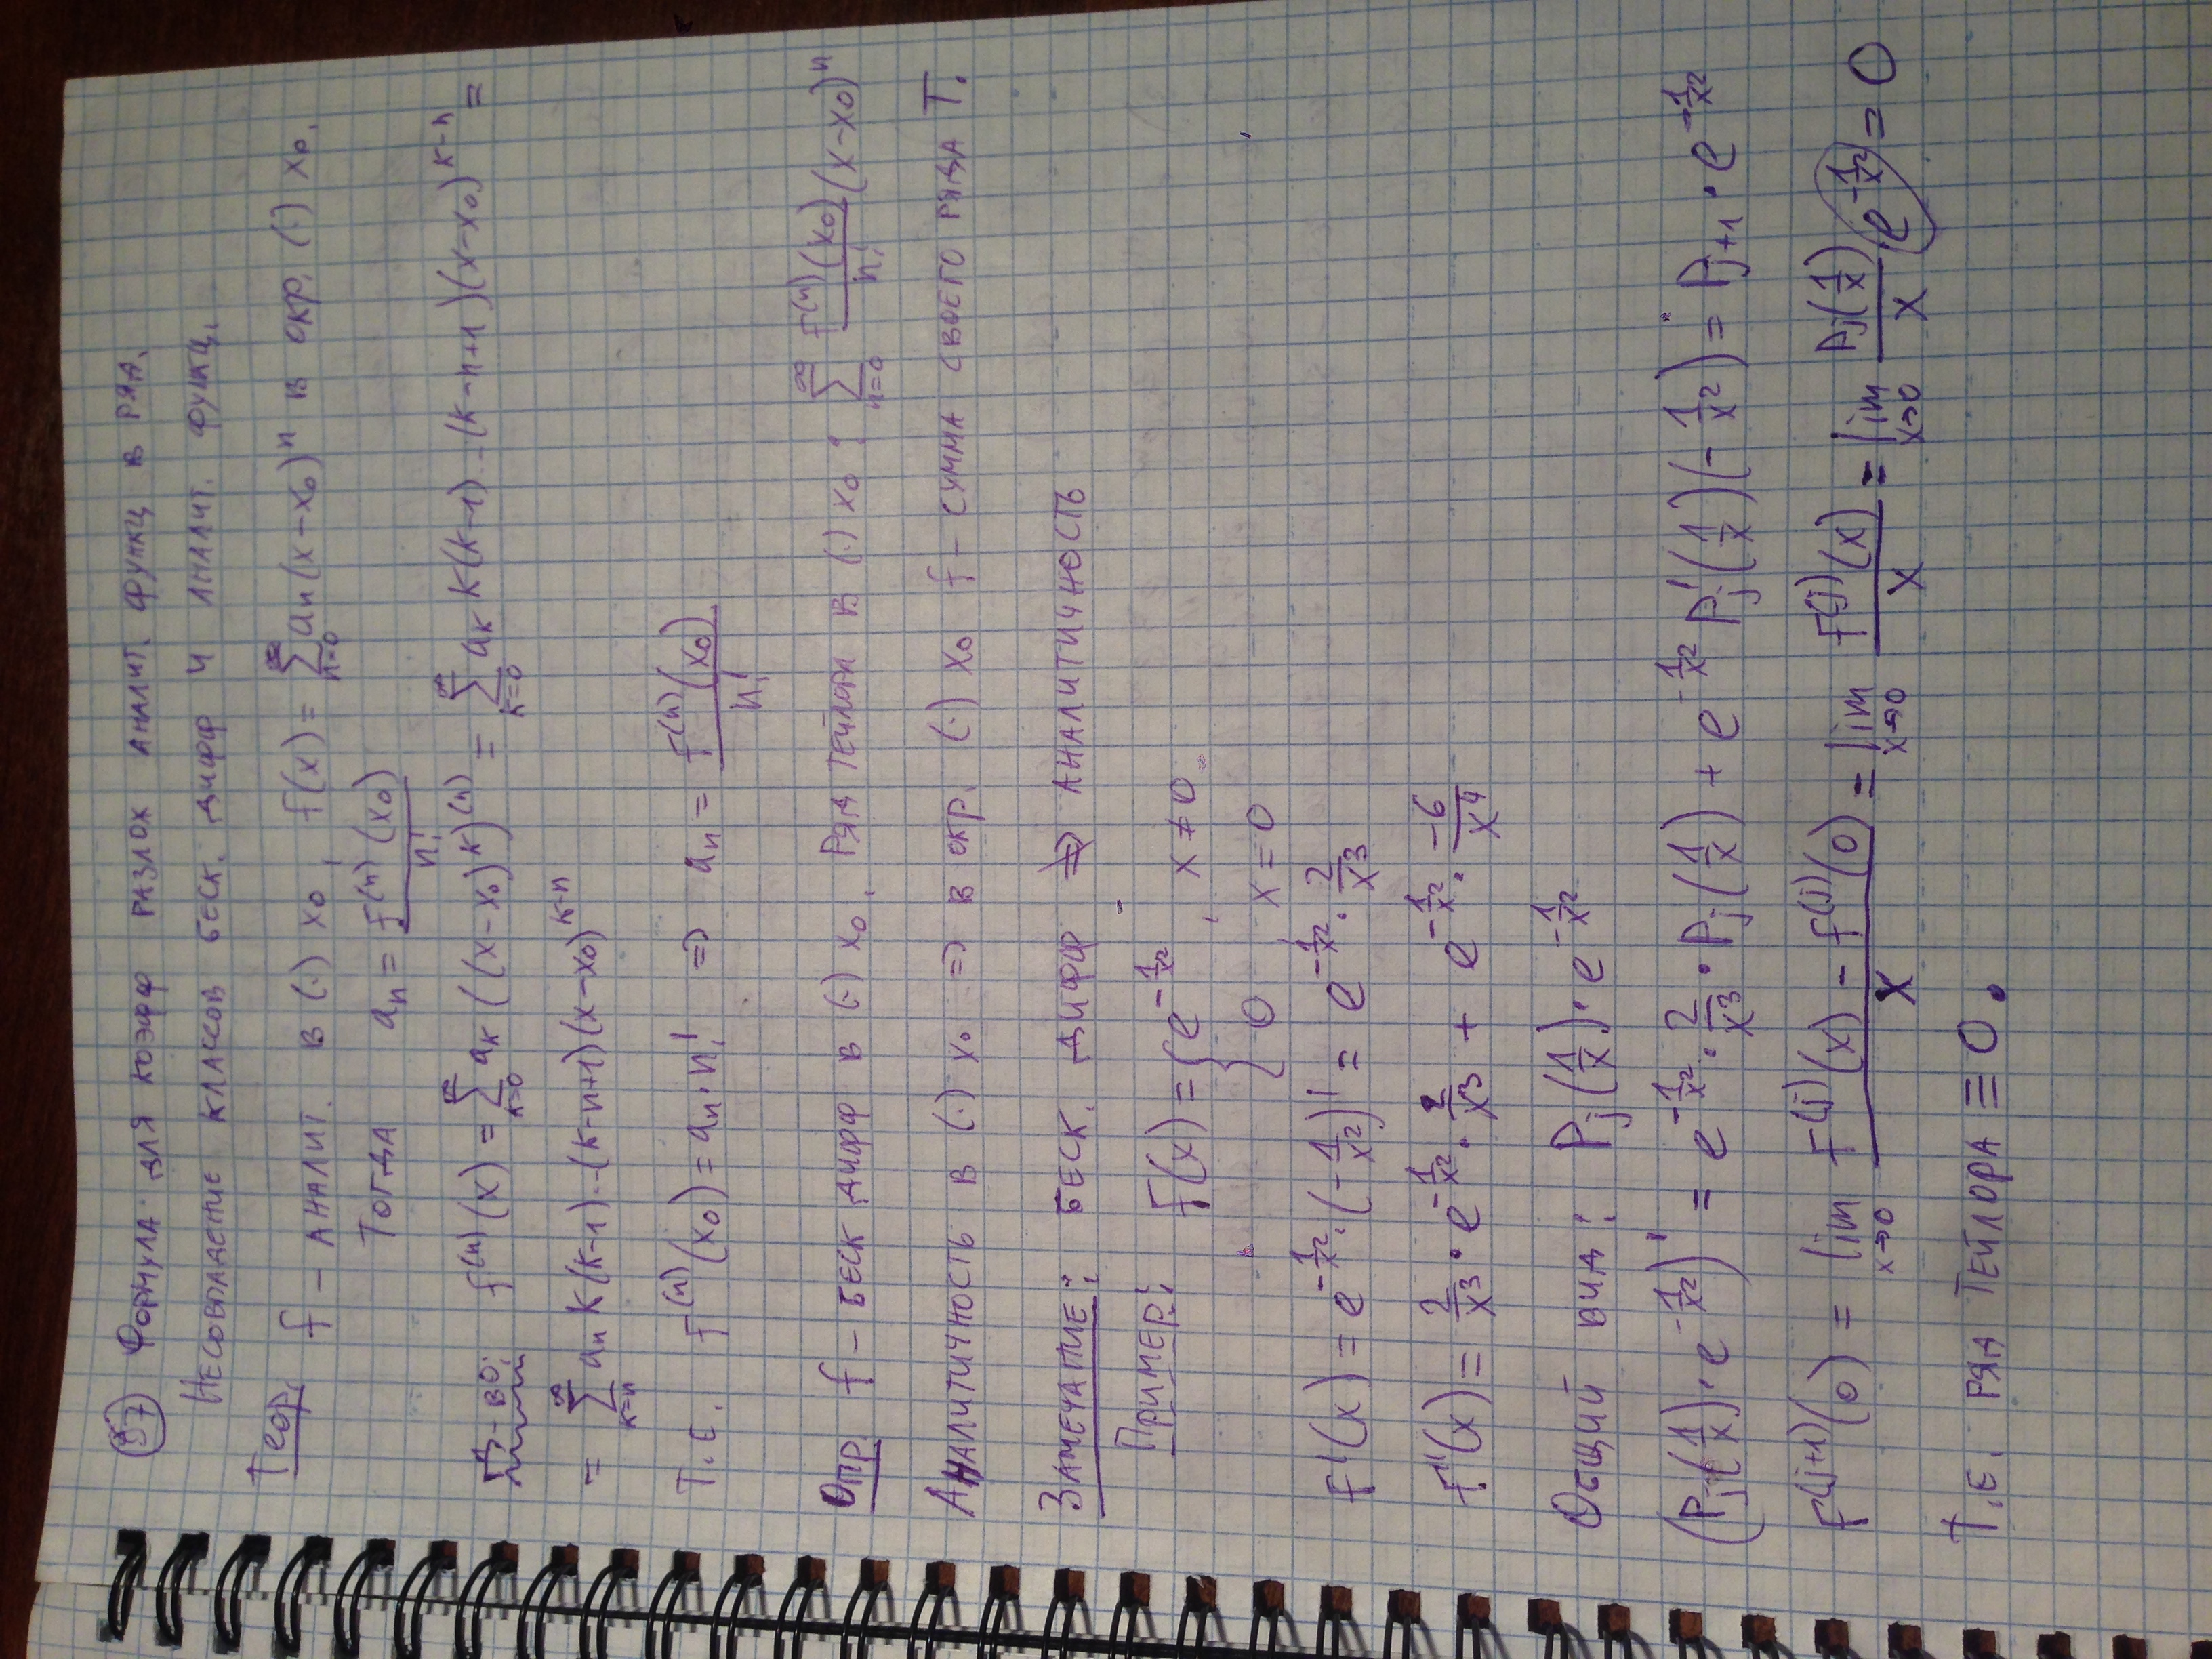 57 Формула для коэфф разлож аналит. функц в ряд.
Несовпадение классов беск. дифф и аналит. функц.
Теор. f – аналит. в (·) x₀, f(x) = ∑_{n=0}^{∞} aₙ(x–x₀)ⁿ в окр. (·) x₀.
Тогда aₙ = f⁽ⁿ⁾(x₀)/n!
Д-во: f⁽ⁿ⁾(x) = ∑_{k=0}^{∞} aₖ((x–x₀)ᵏ)⁽ⁿ⁾ = ∑_{k=0}^{∞} aₖ k(k–1)...(k–n+1)(x–x₀)^{k–n} =
= ∑_{k=n}^{∞} aₙ k(k–1)...(k–n+1)(x–x₀)^{k–n}
Т.е. f⁽ⁿ⁾(x₀) = aₙ·n! ⇒ aₙ = f⁽ⁿ⁾(x₀)/n!
Опр. f – беск дифф в (·) x₀. Ряд Тейлора в (·) x₀: ∑_{n=0}^{∞} f⁽ⁿ⁾(x₀)/n! (x–x₀)ⁿ
Аналитичность в (·) x₀ ⇒ в окр. (·) x₀ f – сумма своего ряда Т.
Замечание: беск. дифф ⇏ аналитичность
Пример: f(x) = { e^{-1/x²}, x ≠ 0
0, x = 0
f'(x) = e^{-1/x²}·(-1/x²)' = e^{-1/x²}·2/x³
f''(x) = 2/x³·e^{-1/x²}·2/x³ + e^{-1/x²}·-6/x⁴
Общий вид: Pⱼ(1/x)·e^{-1/x²}
(Pⱼ(1/x)·e^{-1/x²})' = e^{-1/x²}·2/x³·Pⱼ(1/x) + e^{-1/x²} Pⱼ'(1/x)(-1/x²) = P_{j+1}·e^{-1/x²}
f^{(j+1)}(0) = lim_{x→0} (f^{(j)}(x) – f^{(j)}(0))/x = lim_{x→0} f^{(j)}(x)/x = lim_{x→0} Pⱼ(1/x)/x e^{-1/x²} = 0
Т.е. ряд Тейлора ≡ 0.